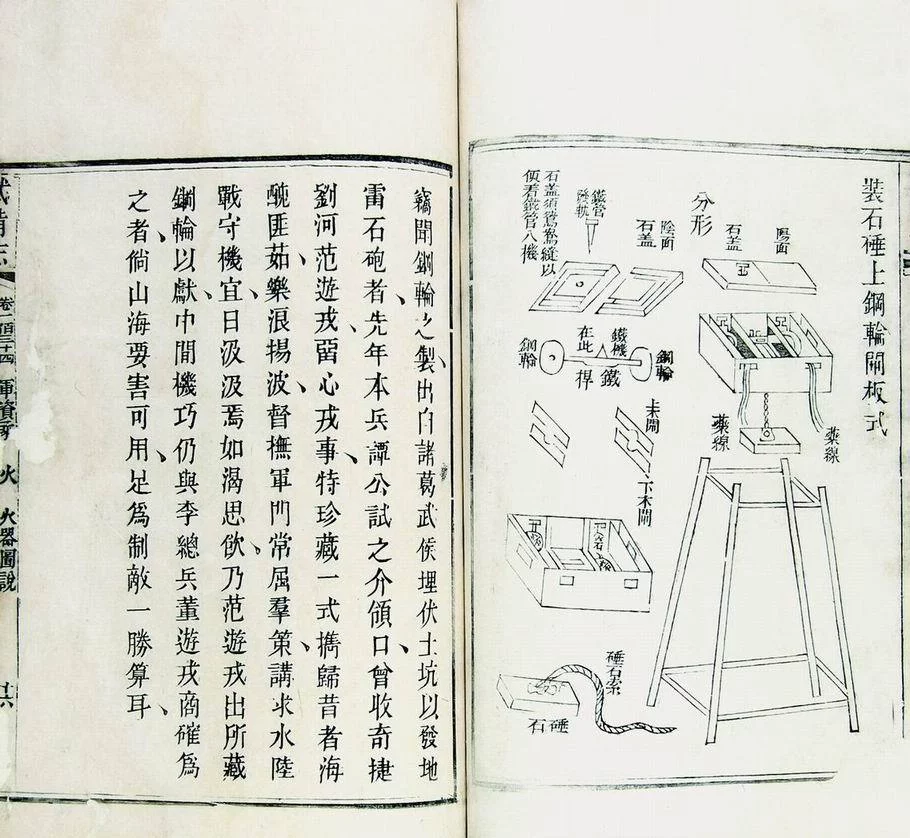 裝石硾上鋼輪閘板式
陽面
石盖
分形
陰面
石盖
鐵管
石盖須鴛鴦縫以
便看鐵管入機
藥線
藥線
鐵機
在此
鐵
桿
鋼輪
鋼輪
上木閘
下木閘
火石
硾石索
石硾
竊聞鋼輪之製出自諸葛武侯埋伏土坑以發地
雷石砲者先年本兵譚公試之介領口曾收奇捷
劉河范遊戎畱心戎事特珍藏一式擕歸昔者海
醜匪茹樂浪揚波督撫軍門常屈羣策講求水陸
戰守機宜日汲汲焉如渴思飲乃范遊戎出所藏
鋼輪以獻巾間機巧仍與李總兵董遊戎商確爲
之者倘山海要害可用足爲制敵一勝算耳
武備志 卷一百三十四 軍資乘 火 火器圖說 十六